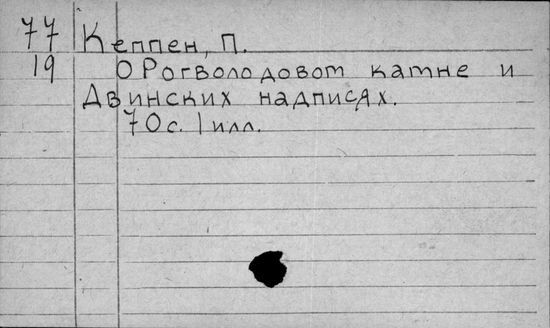 77 Кеппен, П.
19 О Рогволодовом камне и
Двинских надписях.
70с. 1 илл.